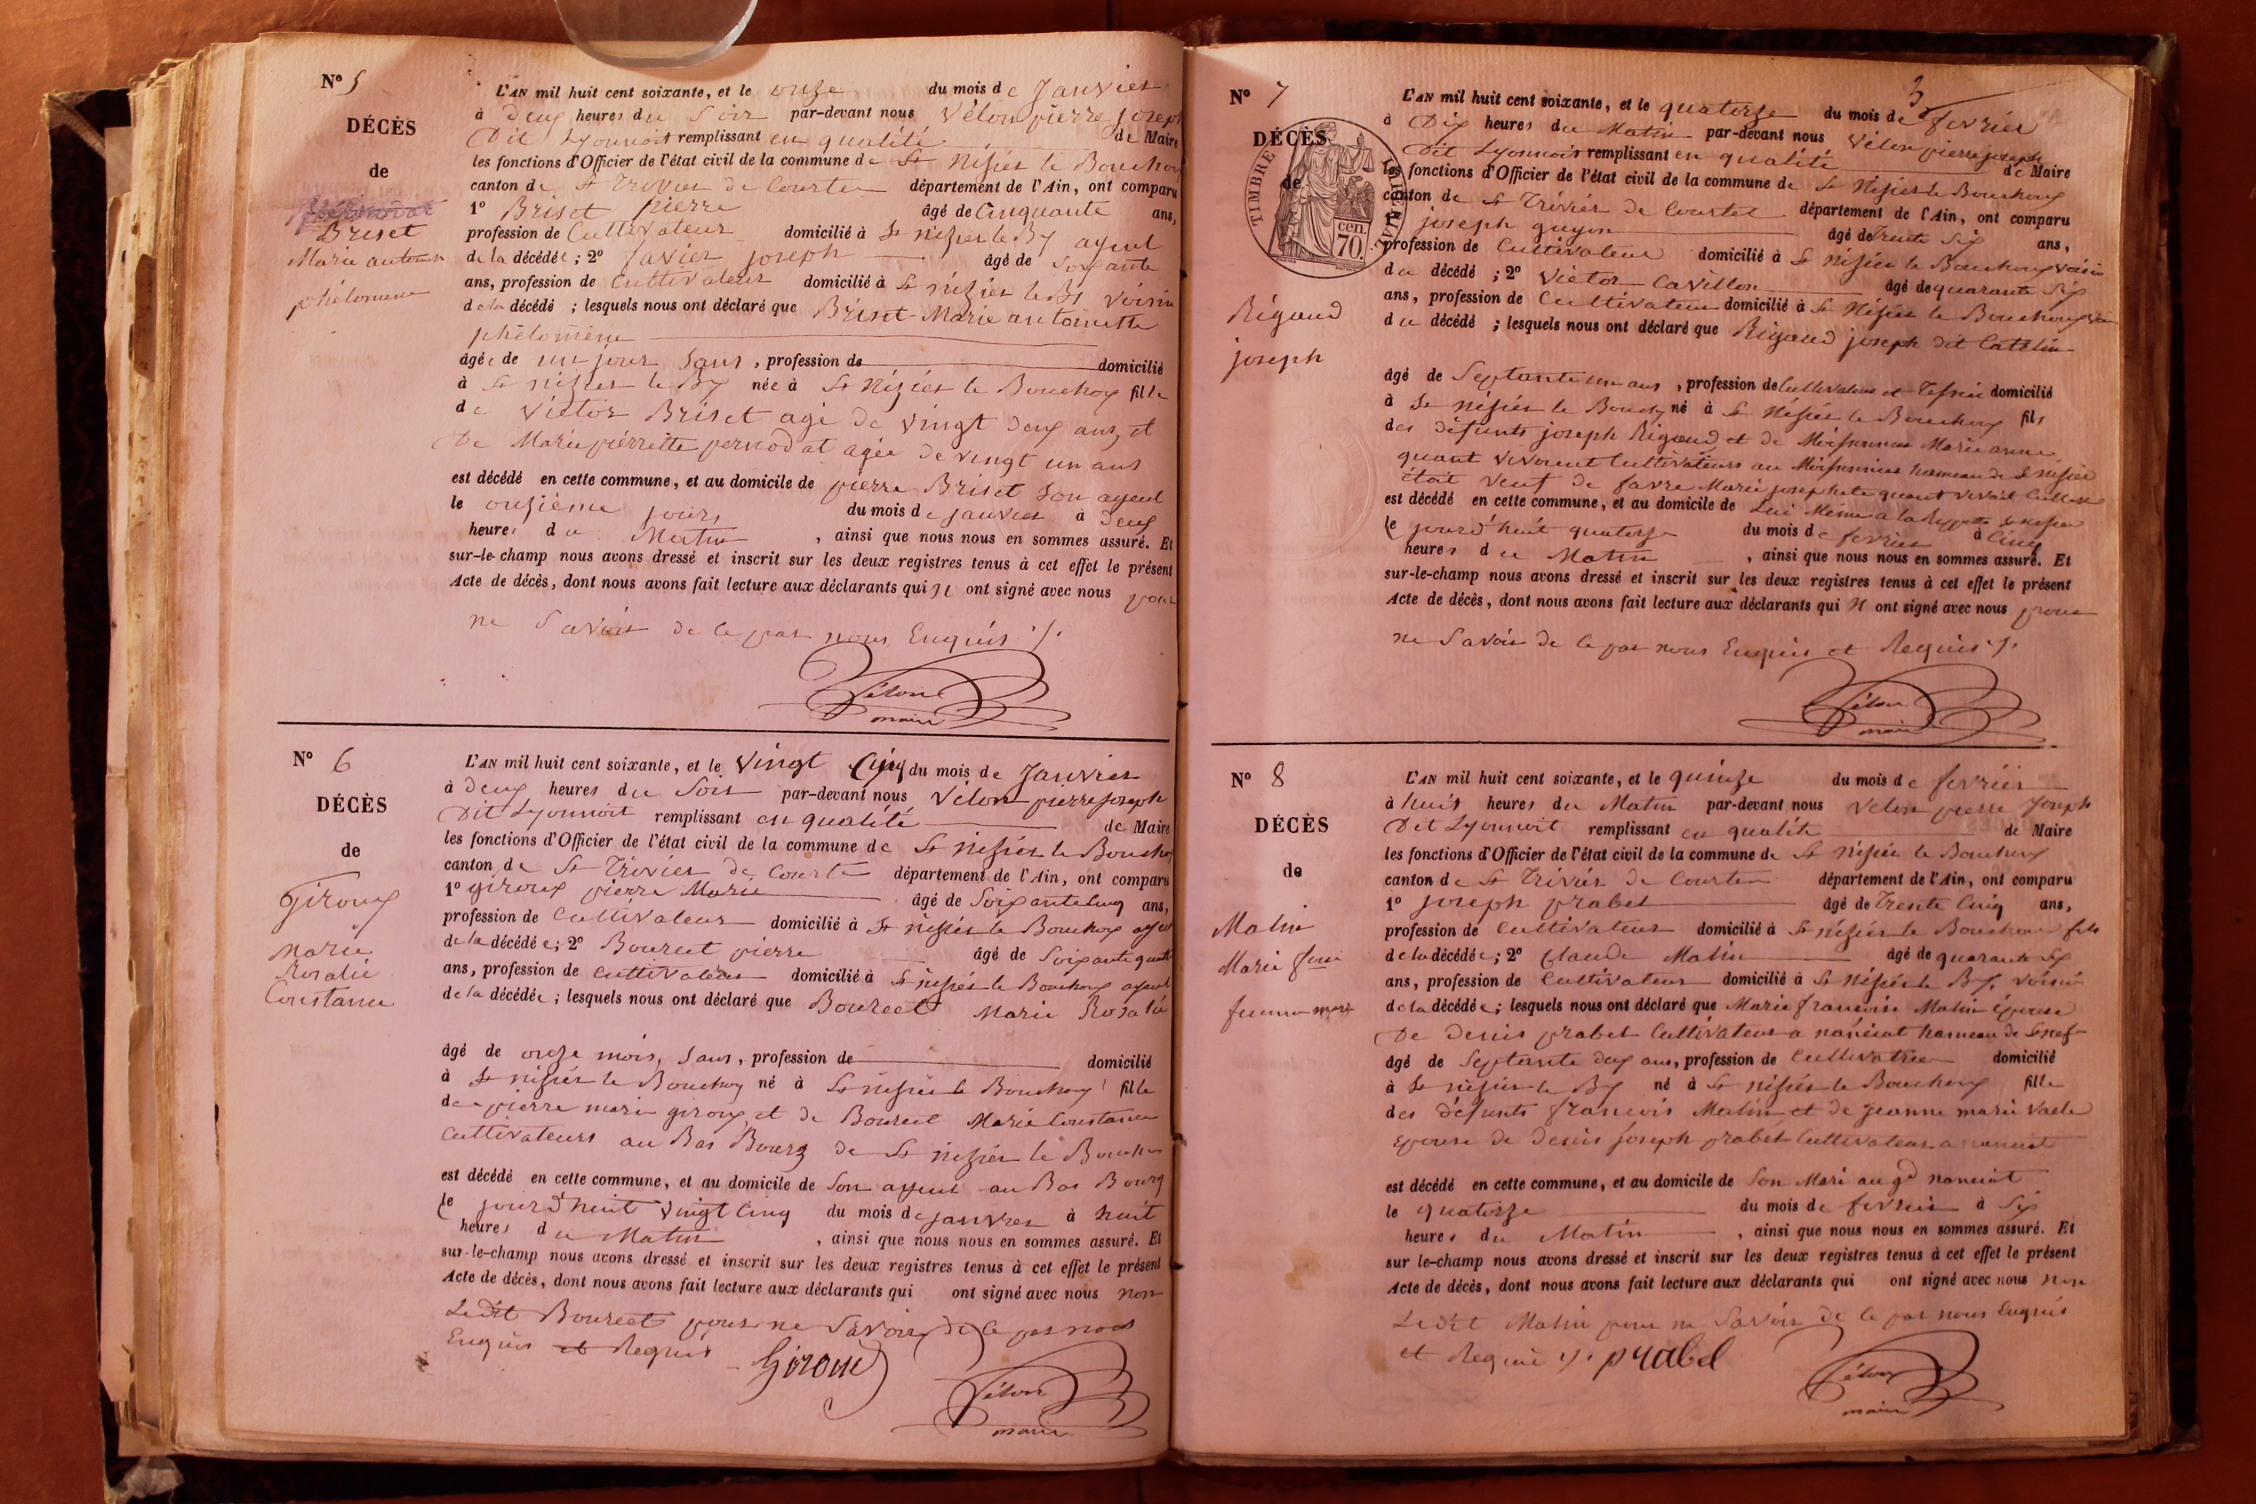 Nº 5
DÉCÈS
de
Briset
Marie antoin
phélomene
L'AN mil huit cent soixante, et le onze du mois de Janvier
à deux heures du Soir par-devant nous Vélon pierre joseph
Dit Lyonnoit remplissant en qualité de Maire
les fonctions d'Officier de l'état civil de la commune de St Nisiér le Bouchoux
canton de St Trivier de Courte département de l'Ain, ont comparu
1º Briset pierre âgé de Cinquante ans,
profession de Cultivateur domicilié à St nisier le By ayeul
de la décédée ; 2º favier joseph âgé de Soixante
ans, profession de Cultivateur domicilié à St niziér le By voisin
de la décédé ; lesquels nous ont déclaré que Briset Marie antoinette
phélomène
âgée de un jour Sans , profession de domicilié
à St niziér le By née à St Niziér le Bouchoux fille
de Victor Briset agé de vingt deux ans et
De Marie pierrette pernodat agée de vingt un ans
est décédé en cette commune, et au domicile de pierre Briset Son ayeul
le onzième jours du mois de janvier à Deux
heures du Matin , ainsi que nous nous en sommes assuré. Et
sur-le-champ nous avons dressé et inscrit sur les deux registres tenus à cet effet le présent
Acte de décès, dont nous avons fait lecture aux déclarants qui N ont signé avec nous pour
ne Savoir de ce par nous Enquis ./.
Vélon
maire
Nº 6
DÉCÈS
de
Giroux
Marie
Rosalie
Constance
L'AN mil huit cent soixante, et le Vingt Cinq du mois de Janvier
à deux heures du Soir par-devant nous Vélon pierre joseph
Dit Lyonnoit remplissant en qualité de Maire
les fonctions d'Officier de l'état civil de la commune de St nisiér le Bouchoux
canton de St Trivier de Courte département de l'Ain, ont comparu
1º giroux pierre Marie âgé de Soixante Cinq ans,
profession de Cultivateur domicilié à St niziér le Bouchoux ayeul
de la décédée; 2º Boureet pierre âgé de Soixante quatre
ans, profession de Cultivateur domicilié à St niziér le Bouchoux ayeul
de la décédée ; lesquels nous ont déclaré que Boureet Marie Rosalie
âgé de onze mois, Sans , profession de domicilié
à St niziér le Bouchoux né à St niziér le Bouchoux fille
de pierre marie giroux et de Boureet Marie Constance
Cultivateurs au Bas Bourg de St niziér le Bouchoux
est décédé en cette commune, et au domicile de Son ayeul au Bas Bourg
le jourd'huit vingt Cinq du mois de janvier à huit
heures du Matin , ainsi que nous nous en sommes assuré. Et
sur-le-champ nous avons dressé et inscrit sur les deux registres tenus à cet effet le présent
Acte de décès, dont nous avons fait lecture aux déclarants qui ont signé avec nous non
Ledit Boureet pour ne Savoir de ce par nous
Enquis et Requis Giroux
Vélon
maire
3
Nº 7
DÉCÈS
de
TIMBRE IMPÉRIAL
cen.
70.
Rigaud
joseph
L'AN mil huit cent soixante, et le quatorze du mois de fevrier
à Dix heures du Matin par-devant nous Vélon pierre joseph
Dit Lyonnois remplissant en qualité de Maire
les fonctions d'Officier de l'état civil de la commune de St Niziér le Bouchoux
canton de St Triviér de Courtes département de l'Ain, ont comparu
1º joseph guyon âgé de Trente Six ans,
profession de Cultivateur domicilié à St niziér le Bouchoux voisin
du décédé ; 2º Victor Cavillon âgé de quarante Six
ans, profession de Cultivateur domicilié à St Niziér le Bouchoux
du décédé ; lesquels nous ont déclaré que Rigaud joseph dit Catelin
âgé de Septante un ans , profession de Cultivateur et domicilié
à St niziér le Bouch né à St Niziér le Bouchoux fils
des défunts joseph Rigaud et de Marie anne
quant vivoient Cultivateurs au hameau de St niziér
était veuf de favre Marie josephete quant vivait
est décédé en cette commune, et au domicile de Lui Même a la St niziér
le jourd'huit quatorze du mois de fevrier à Cinq
heures du Matin , ainsi que nous nous en sommes assuré. Et
sur-le-champ nous avons dressé et inscrit sur les deux registres tenus à cet effet le présent
Acte de décès, dont nous avons fait lecture aux déclarants qui N ont signé avec nous pour
ne Savoir de ce par nous Enquis et Requis ./.
Vélon
maire
Nº 8
DÉCÈS
de
Matin
Marie
femme
L'AN mil huit cent soixante, et le quinze du mois de fevriér
à huit heures du Matin par-devant nous Velon pierre Joseph
Dit Lyonnoit remplissant en qualité de Maire
les fonctions d'Officier de l'état civil de la commune de St niziér le Bouchoux
canton de St Triviér de Courte département de l'Ain, ont comparu
1º joseph prabel âgé de Trente Cinq ans,
profession de Cultivateur domicilié à St niziér le Bouchoux fils
de la décédée; 2º Claude Matin âgé de quarante Six
ans, profession de Cultivateur domicilié à St Niziér le By, voisin
de la décédée; lesquels nous ont déclaré que Marie françoise Matin épouse
De Denis prabel Cultivateur a nanciat hameau de St
âgé de Septante deux ans, profession de Cultivatrice domicilié
à St niziér le By né à St niziér le Bouchoux fille
des défunts françois Matin et de Jeanne marie
Epouse de Denis joseph prabel Cultivateur a nanciat
est décédé en cette commune, et au domicile de Son Mari au gd nanciat
le quatorze du mois de fevrier à Six
heures du Matin , ainsi que nous nous en sommes assuré. Et
sur le-champ nous avons dressé et inscrit sur les deux registres tenus à cet effet le présent
Acte de décès, dont nous avons fait lecture aux déclarants qui ont signé avec nous non
Ledit Matin pour ne Savoir de ce par nous Enquis
et Requis ./. prabel
Vélon
maire